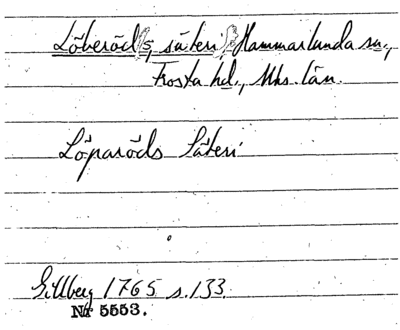 Löberöds säteri, Hammarlunda sn.,
Frosta hd., Mhs. län.
Löparöds Säteri
Gillberg 1765 s. 133.
Nr 5553.